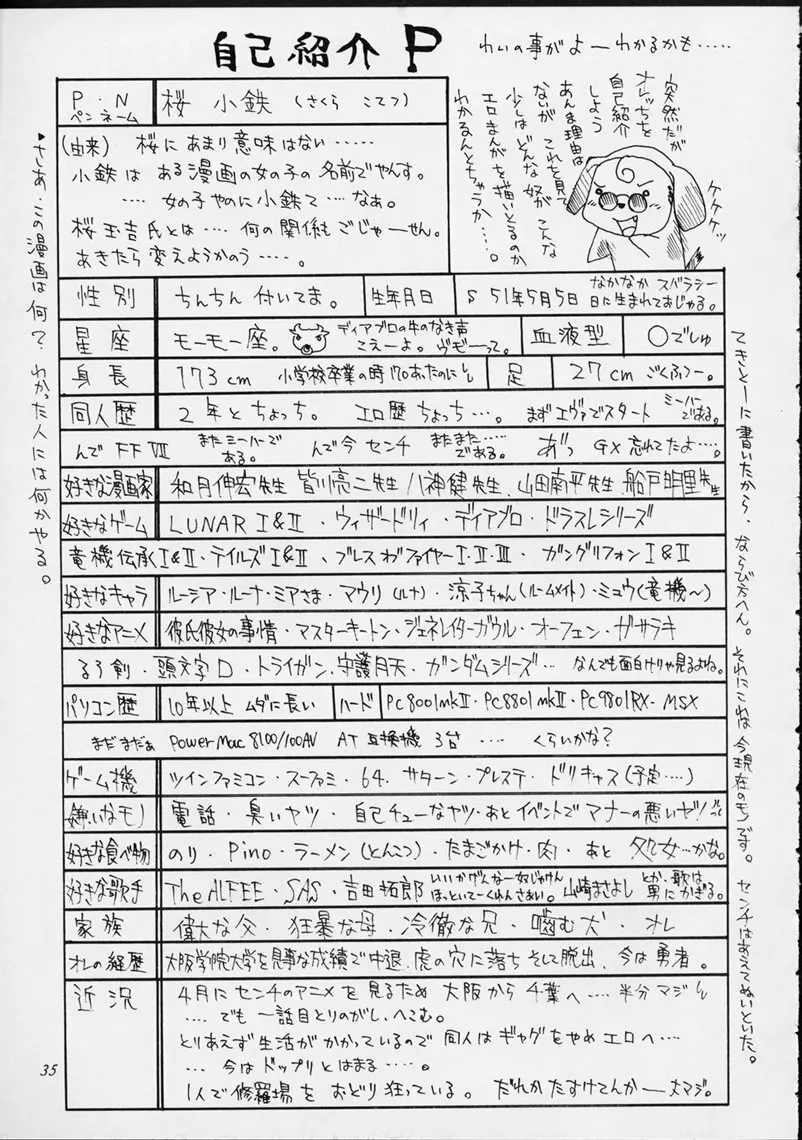 自己紹介P
わいの事がよーわかるかも・・・・・
突然だが
オレっちを
自己紹介
しよう
あんま理由は
ないが これを見て
少しは どんな奴が こんな
エロまんがを描いとるのか
わかるんとちゃうか・・・・。
ケケケッ
P・N
ペンネーム
桜 小鉄 (さくら こてつ)
(由来) 桜にあまり意味はない・・・・・
小鉄は ある漫画の女の子の名前でやんす。
・・・・ 女の子やのに小鉄て・・・・なぁ。
桜玉吉氏とは・・・・ 何の関係もごじゃーせん。
あきたら変えようかのう・・・・・。
性別 ちんちん付いてま。 生年月日 S51年5月5日 なかなか スバラシー
日に生まれておじゃる。
星座 モーモー座。 ディアブロの牛のなき声
こえーよ。ヴモーって。 血液型 ○でしゅ
身長 173cm 小学校卒業の時170あったのに 足 27cm ごくふつー。
同人歴 2年とちょっち。 エロ歴ちょっち・・・。 まずエヴァでスタート ミーハー
である。
んで FFⅦ またミーハーで
ある。 んで今 センチ またまた・・・・・
である。 あ"っ GX忘れてたよ・・・・。
好きな漫画家 和月伸宏先生 皆川亮二先生 八神健先生、山田南平先生、船戸明里先生
好きなゲーム LUNAR Ⅰ&Ⅱ・ウィザードリィ・ディアブロ・ドラスレシリーズ
竜機伝承Ⅰ&Ⅱ・テイルズⅠ&Ⅱ、ブレスオブファイヤーⅠ・Ⅱ・Ⅲ・ ガングリフォンⅠ&Ⅱ
好きなキャラ ルーシア・ルーナ・ミアさま・マウリ(ルナ)・涼子ちゃん(ルームメイト)・ミュウ(竜機〜)
好きなアニメ 彼氏彼女の事情・マスターキートン・ジェネレイターガウル・オーフェン・ガサラキ
るろ剣・頭文字D・トライガン、守護月天・ガンダムシリーズ・・・ なんでも面白けりゃ見るよね。
パソコン歴 10年以上 ムダに長い ハード PC8001mkⅡ・PC8801mkⅡ・PC9801RX・MSX
まだまだぁ Power Mac 8100/100AV AT互換機 3台 ・・・・ くらいかな?
ゲーム機 ツインファミコン・スーファミ・64、サターン・プレステ・ドリキャス(予定・・・・)
嫌いなモノ 電話・臭いヤツ・自己チューなヤツ・あとイベントでマナーの悪いヤツ!
好きな食べ物 のり・Pino・ラーメン(とんこつ)・たまごかけ・肉・あと 処女・・・かな。
好きな歌手 The ALFEE・SAS・吉田拓郎 いいかげんなー奴じゃけん
ほっといてーくれんさあい。 山崎まさよし とか、歌は
男にかぎる。
家族 偉大な父・狂暴な母・冷徹な兄・噛む犬・オレ
オレの経歴 大阪学院大学を見事な成績で中退、虎の穴に落ちそして脱出、今は勇者。
近況 4月にセンチのアニメを見るため 大阪から千葉へ・・・・ 半分マジ
・・・・ でも 一話目とりのがし、へこむ。
とりあえず生活がかかっているので同人はギャグをやめエロへ・・・
・・・ 今はドップリとはまる・・・・。
1人で修羅場を おどり狂っている。 だれかたすけてんかー大マジ。
♥さあ、この漫画は何? わかった人には何かやる。
てきとーに書いたから、ならび方へん。それにこれは今現在のモンです。 センチはあえてぬいといた。
35